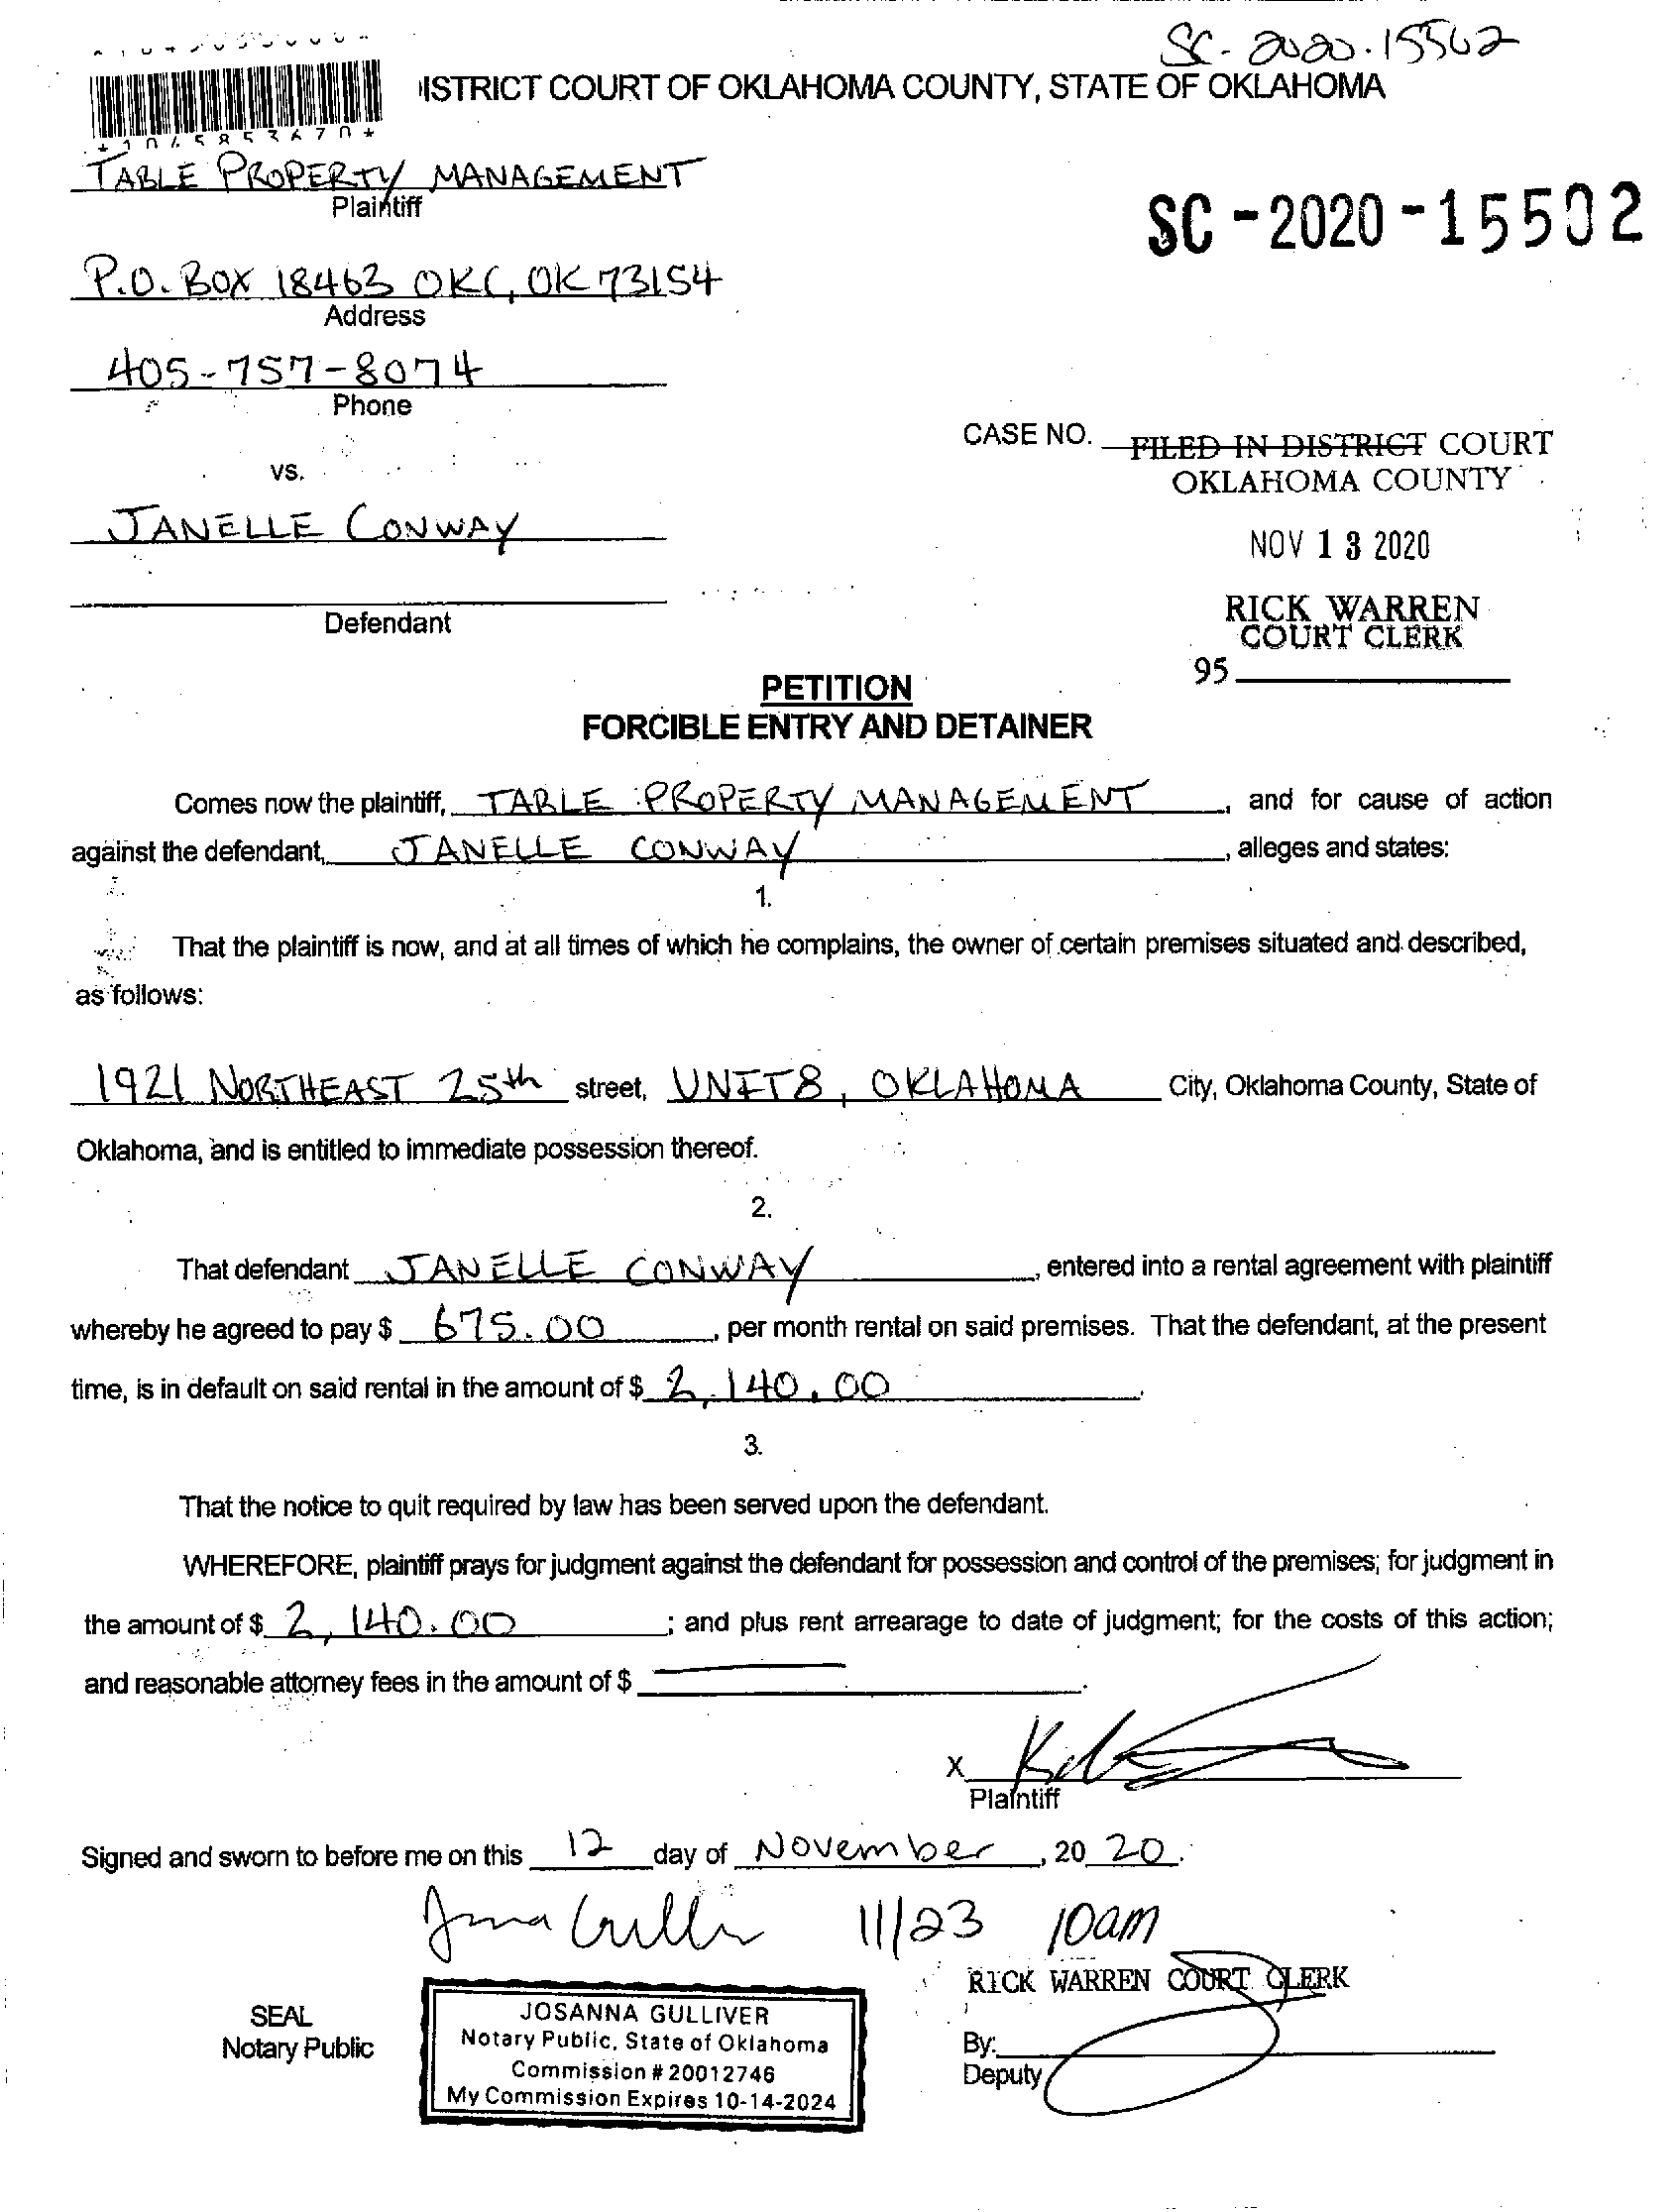 SC-2020-15502
ISTRICT COURT OF OKLAHOMA COUNTY, STATE OF OKLAHOMA
TABLE PROPERTY MANAGEMENT
Plaintiff
SC-2020-15502
P.O. BOX 18463 OKC, OK 73154
Address
405-757-8074
Phone
CASE NO. FILED IN DISTRICT COURT
OKLAHOMA COUNTY
vs.
JANELLE CONWAY
NOV 13 2020
Defendant
RICK WARREN
COURT CLERK
95
PETITION
FORCIBLE ENTRY AND DETAINER
Comes now the plaintiff, TABLE PROPERTY MANAGEMENT, and for cause of action
against the defendant, JANELLE CONWAY, alleges and states:
1.
That the plaintiff is now, and at all times of which he complains, the owner of certain premises situated and described,
as follows:
1921 NORTHEAST 25th street, UNIT 8, OKLAHOMA City, Oklahoma County, State of
Oklahoma, and is entitled to immediate possession thereof.
2.
That defendant JANELLE CONWAY, entered into a rental agreement with plaintiff
whereby he agreed to pay $ 675.00, per month rental on said premises. That the defendant, at the present
time, is in default on said rental in the amount of $ 2,140.00.
3.
That the notice to quit required by law has been served upon the defendant.
WHEREFORE, plaintiff prays for judgment against the defendant for possession and control of the premises; for judgment in
the amount of $ 2,140.00; and plus rent arrearage to date of judgment; for the costs of this action;
and reasonable attorney fees in the amount of $
X
Plaintiff
Signed and sworn to before me on this 12 day of November, 20 20.
11/23 10am
RICK WARREN COURT CLERK
SEAL
Notary Public
JOSANNA GULLIVER
Notary Public, State of Oklahoma
Commission # 20012746
My Commission Expires 10-14-2024
By:
Deputy